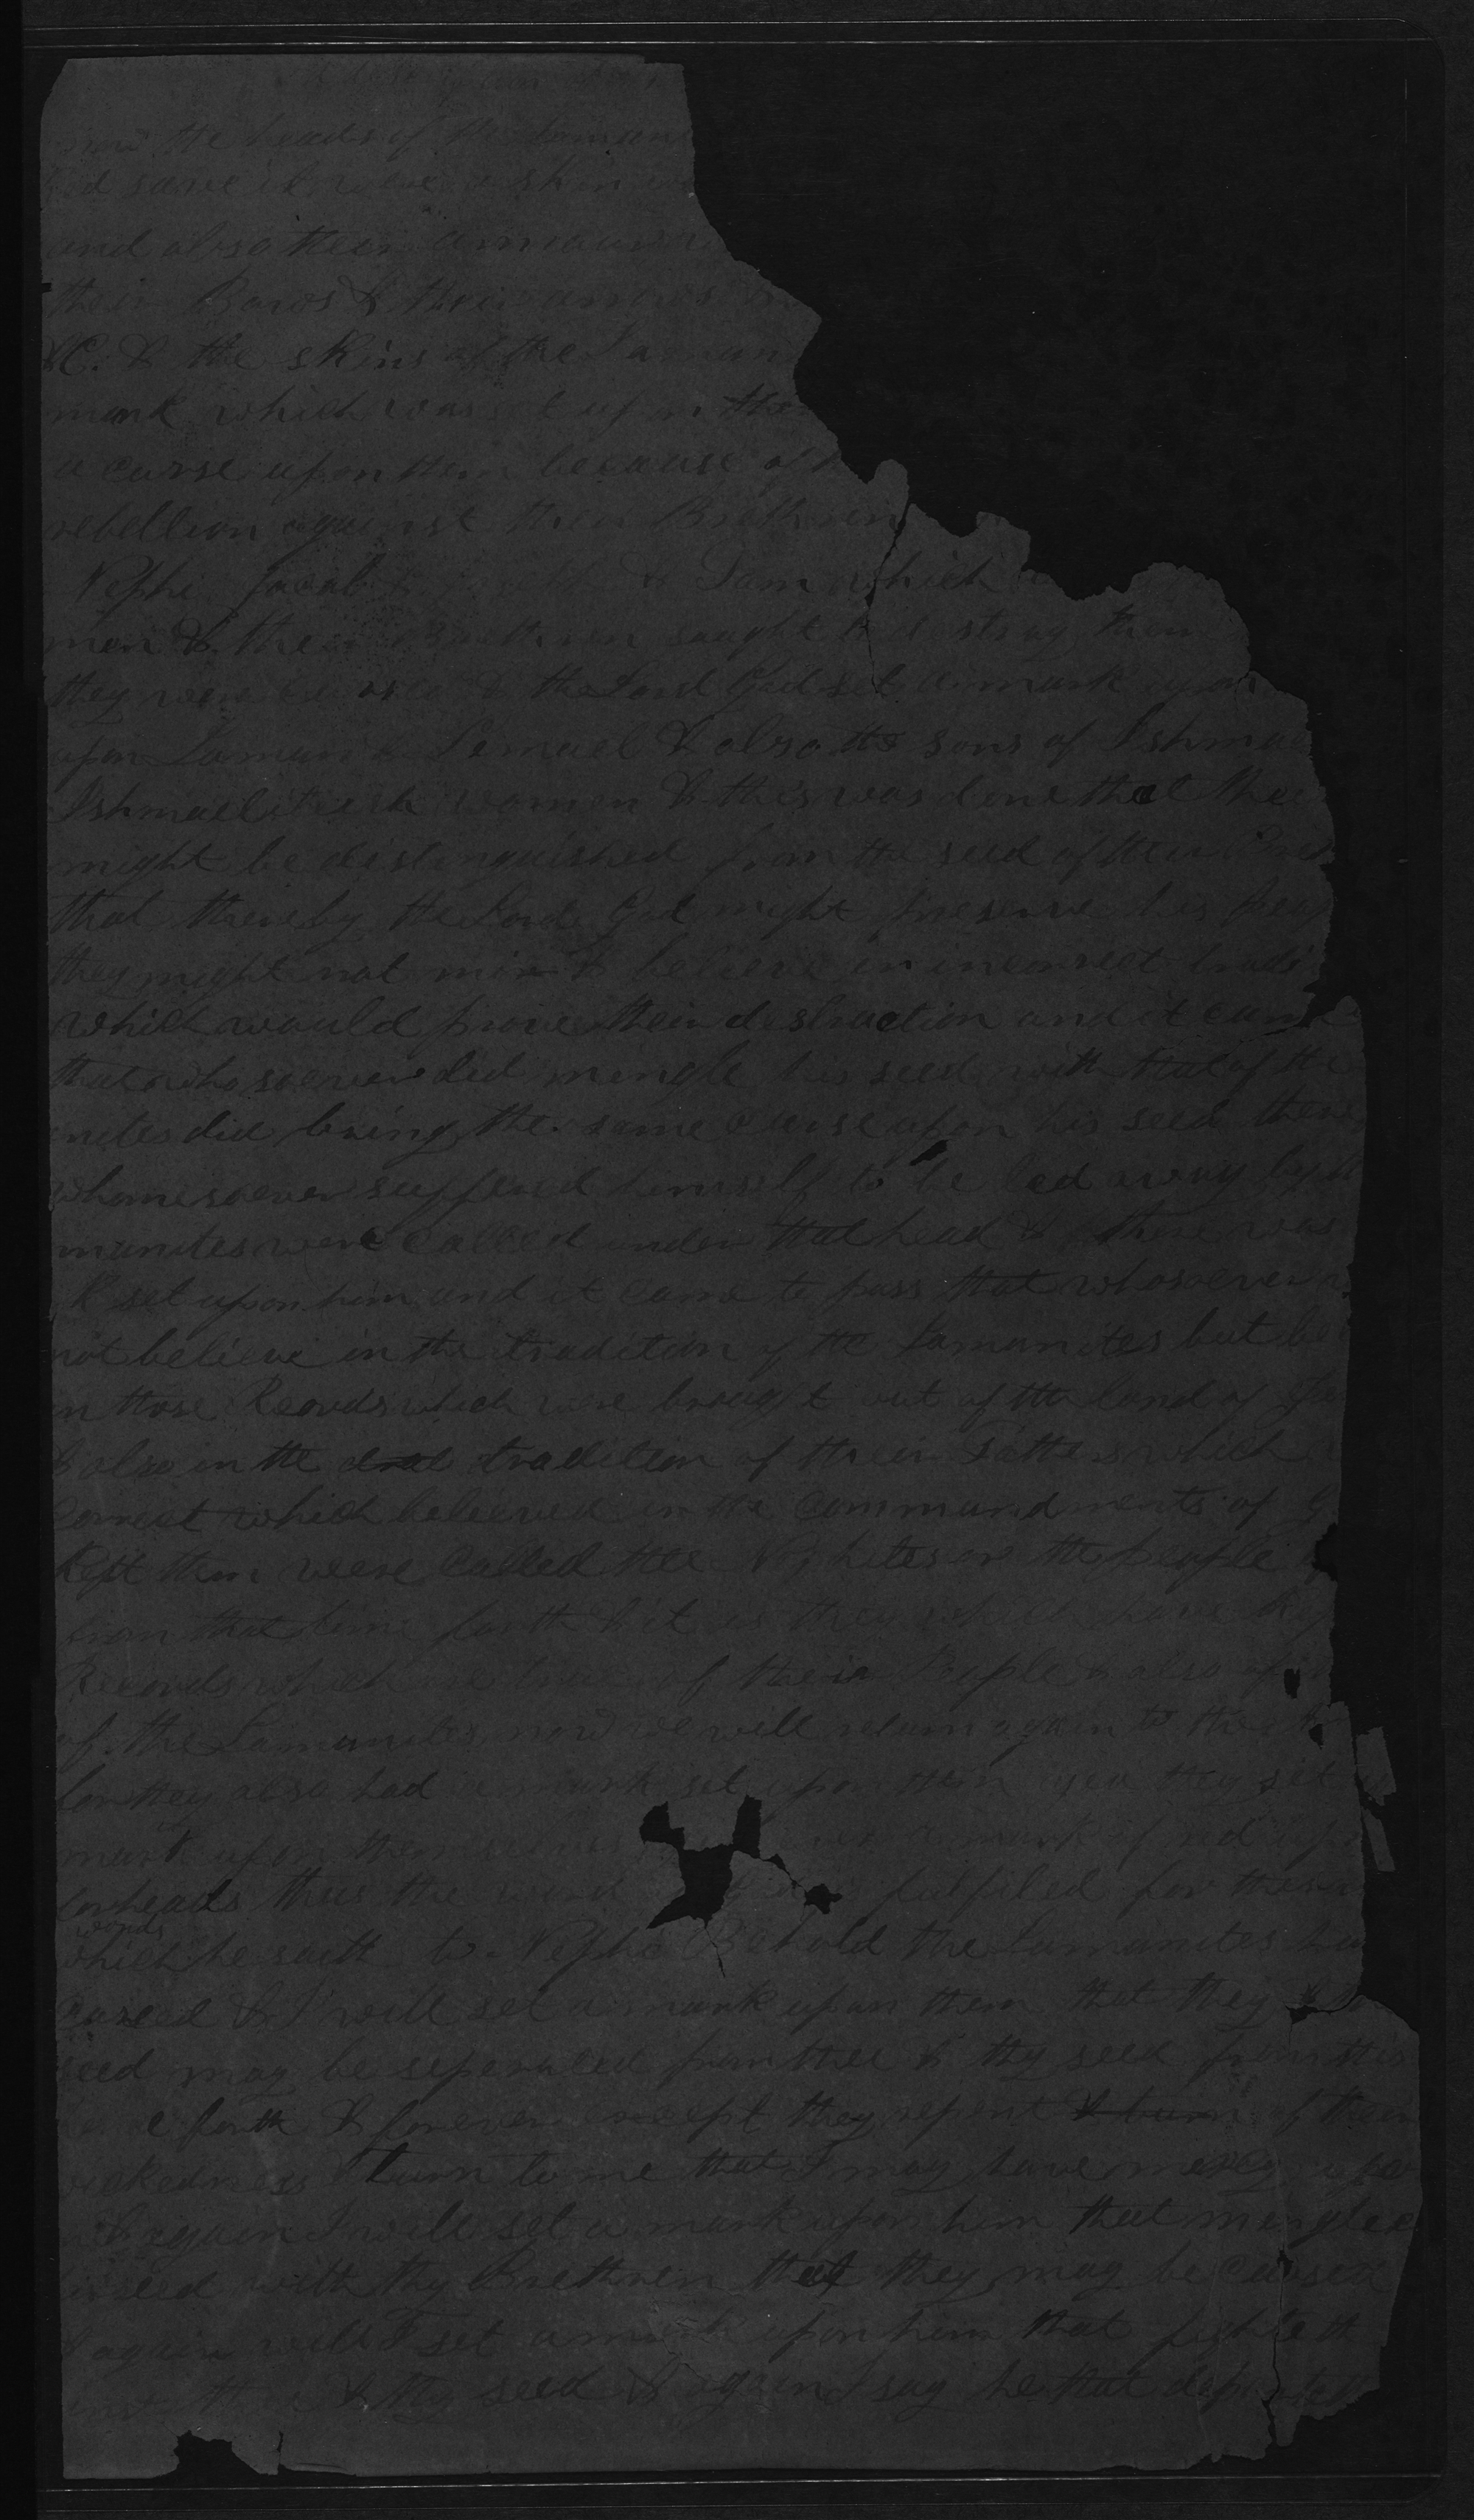 the heads of the Laman
save it were skin
and also their armour
their Bows & their arrows
&C. & the skins of the Laman
mark which was set upon the
a curse upon them because of
rebellion against their Brethren
Nephi Jacob & Sam which
men & their Brethren saught to destroy them
they were & the Lord God set a mark upon
upon Laman & Lemuel & also the sons of Ishmae
Ishmaelitish women & this was done that thei
might be distinguished from the seed of their
that thereby the Lord God might preserve his peop
they might not mix & believe in incorrect tradi
which would prove their destruction and it came
that whosoever did mingle his seed with that of the
nites did bring the same curse upon his seed there
whomsoever suffered himself to be led away by
manites were called under that head & there was
k set upon him and it came to pass that whosoever
not believe in the tradition of the Lamanites but be
in those Records which were brought out of the land of Je
& also in the tradition of their Fathers which
correct which believed in the commandments of G
kept them were called the Nephites or the people
from that time forth & it is they which have kep
Records which are true of their People & also of
of the Lamanites now we will return again to the
for they also had a mark set upon them yea they set
mark upon them a mark of red upo
forheads thus the word fulfiled for these
words
which he saith to Nephi Behold the Lamanites ha
cursed & I will set a mark upon them that they &
seed may be seperated from thee & thy seed from this
e forth & forever except they repent & turn of their
wickedness & turn to me that I may have mercy upo
& again I will set a mark upon him that mingleth
seed with thy Brethren that they may be cursed
again will I set a mark upon him that fighteth
thee & thy seed & again I say he that departeth